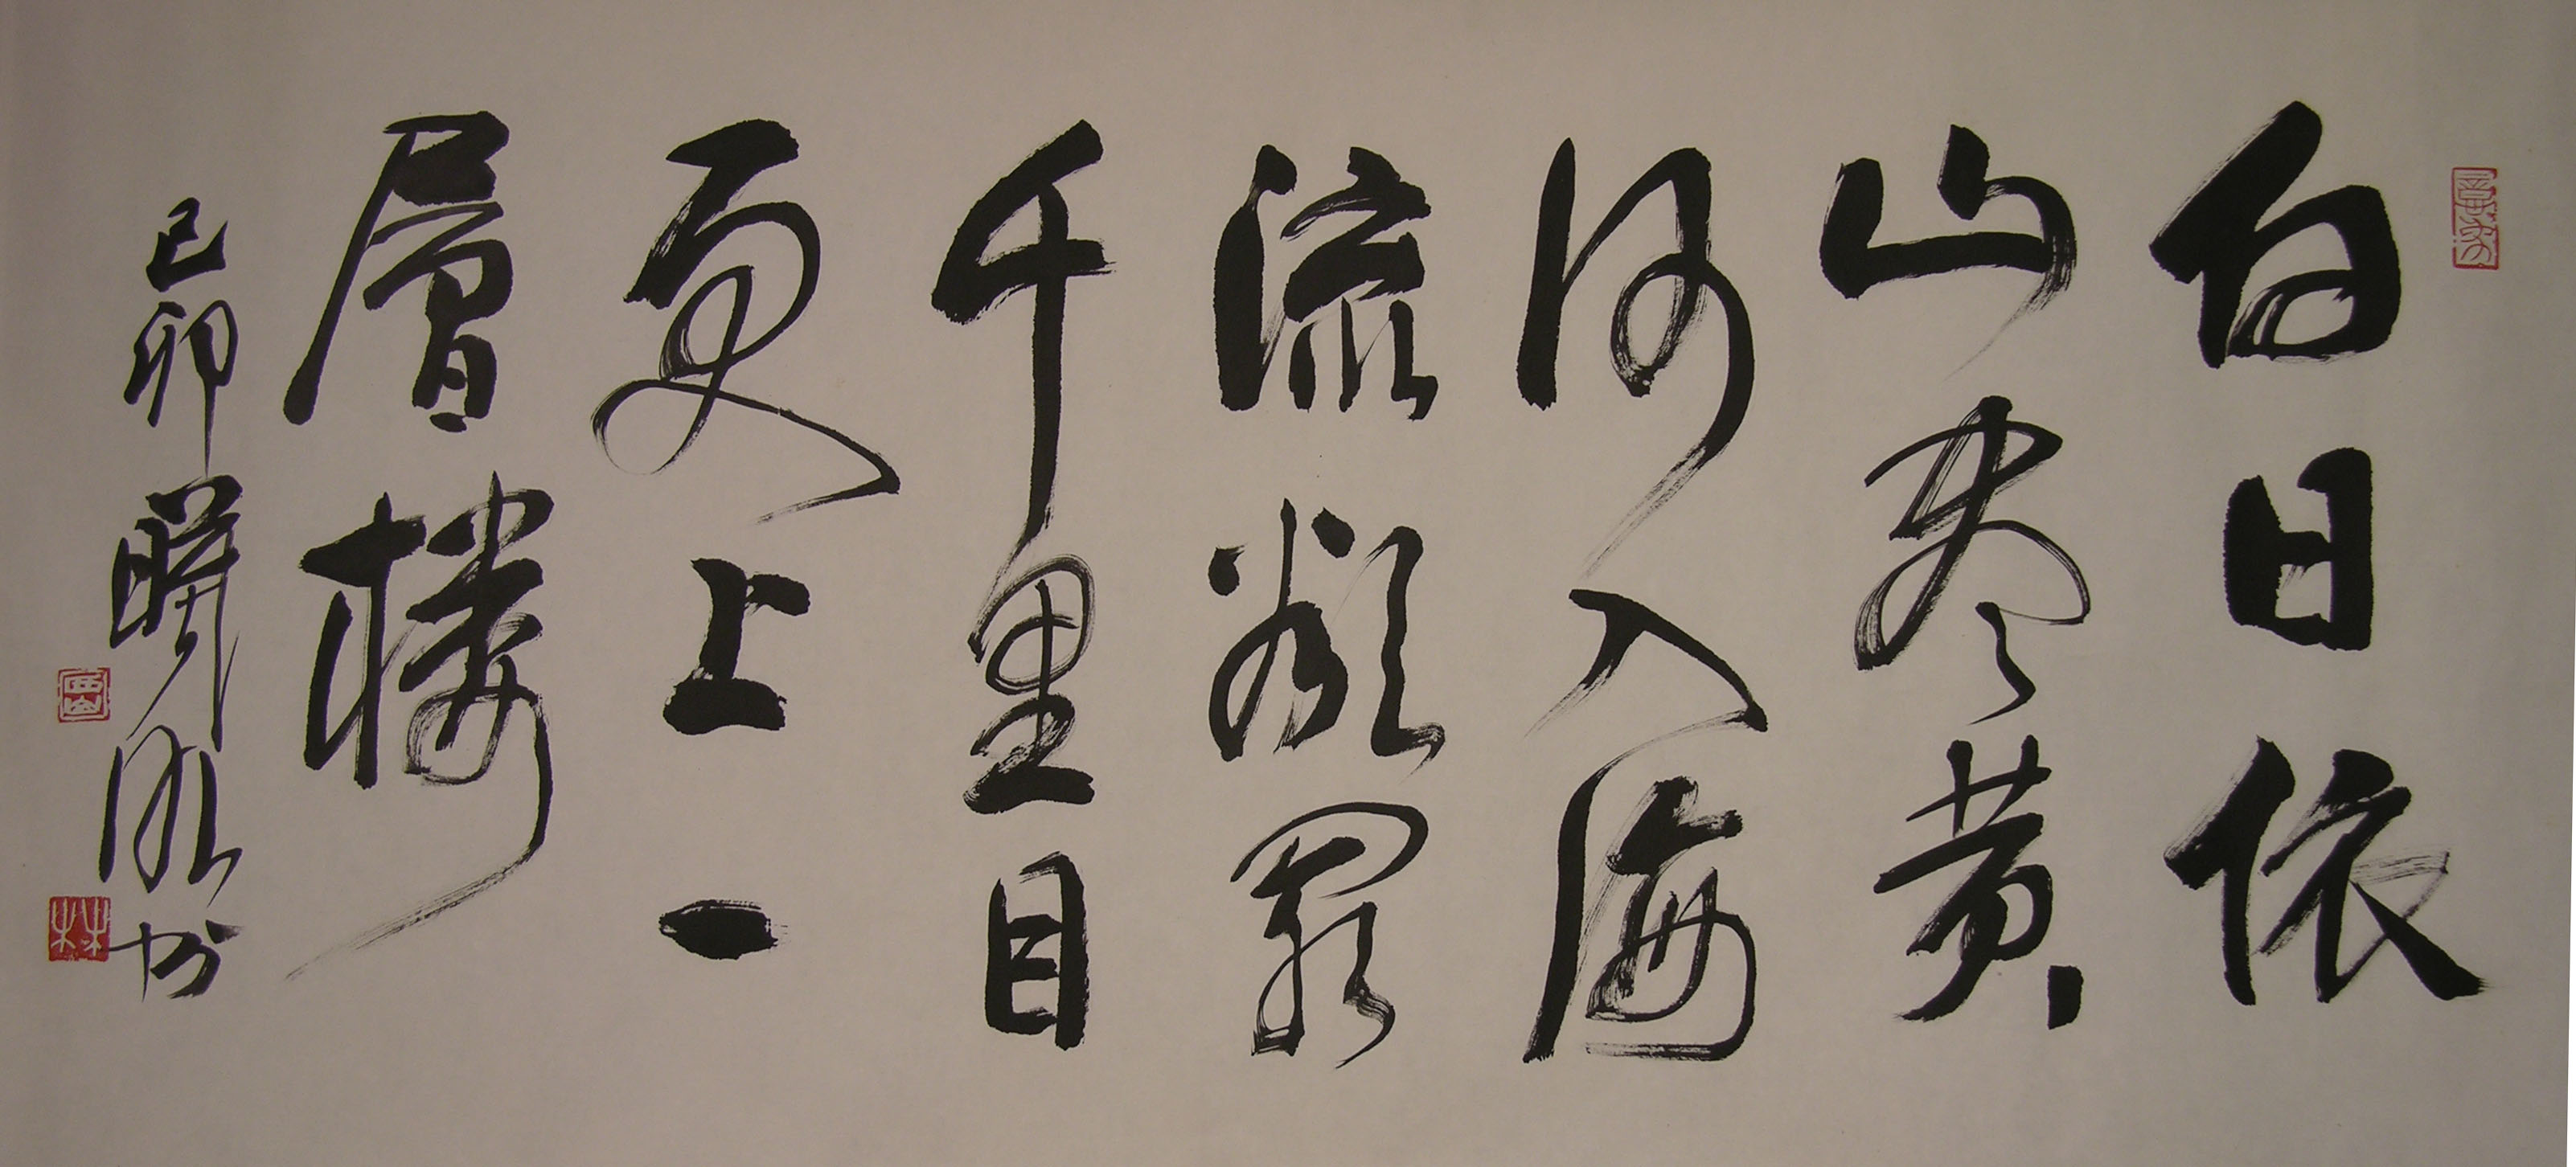 白日依
山尽黄
河入海
流欲穷
千里目
更上一
层楼
己卯
书
林